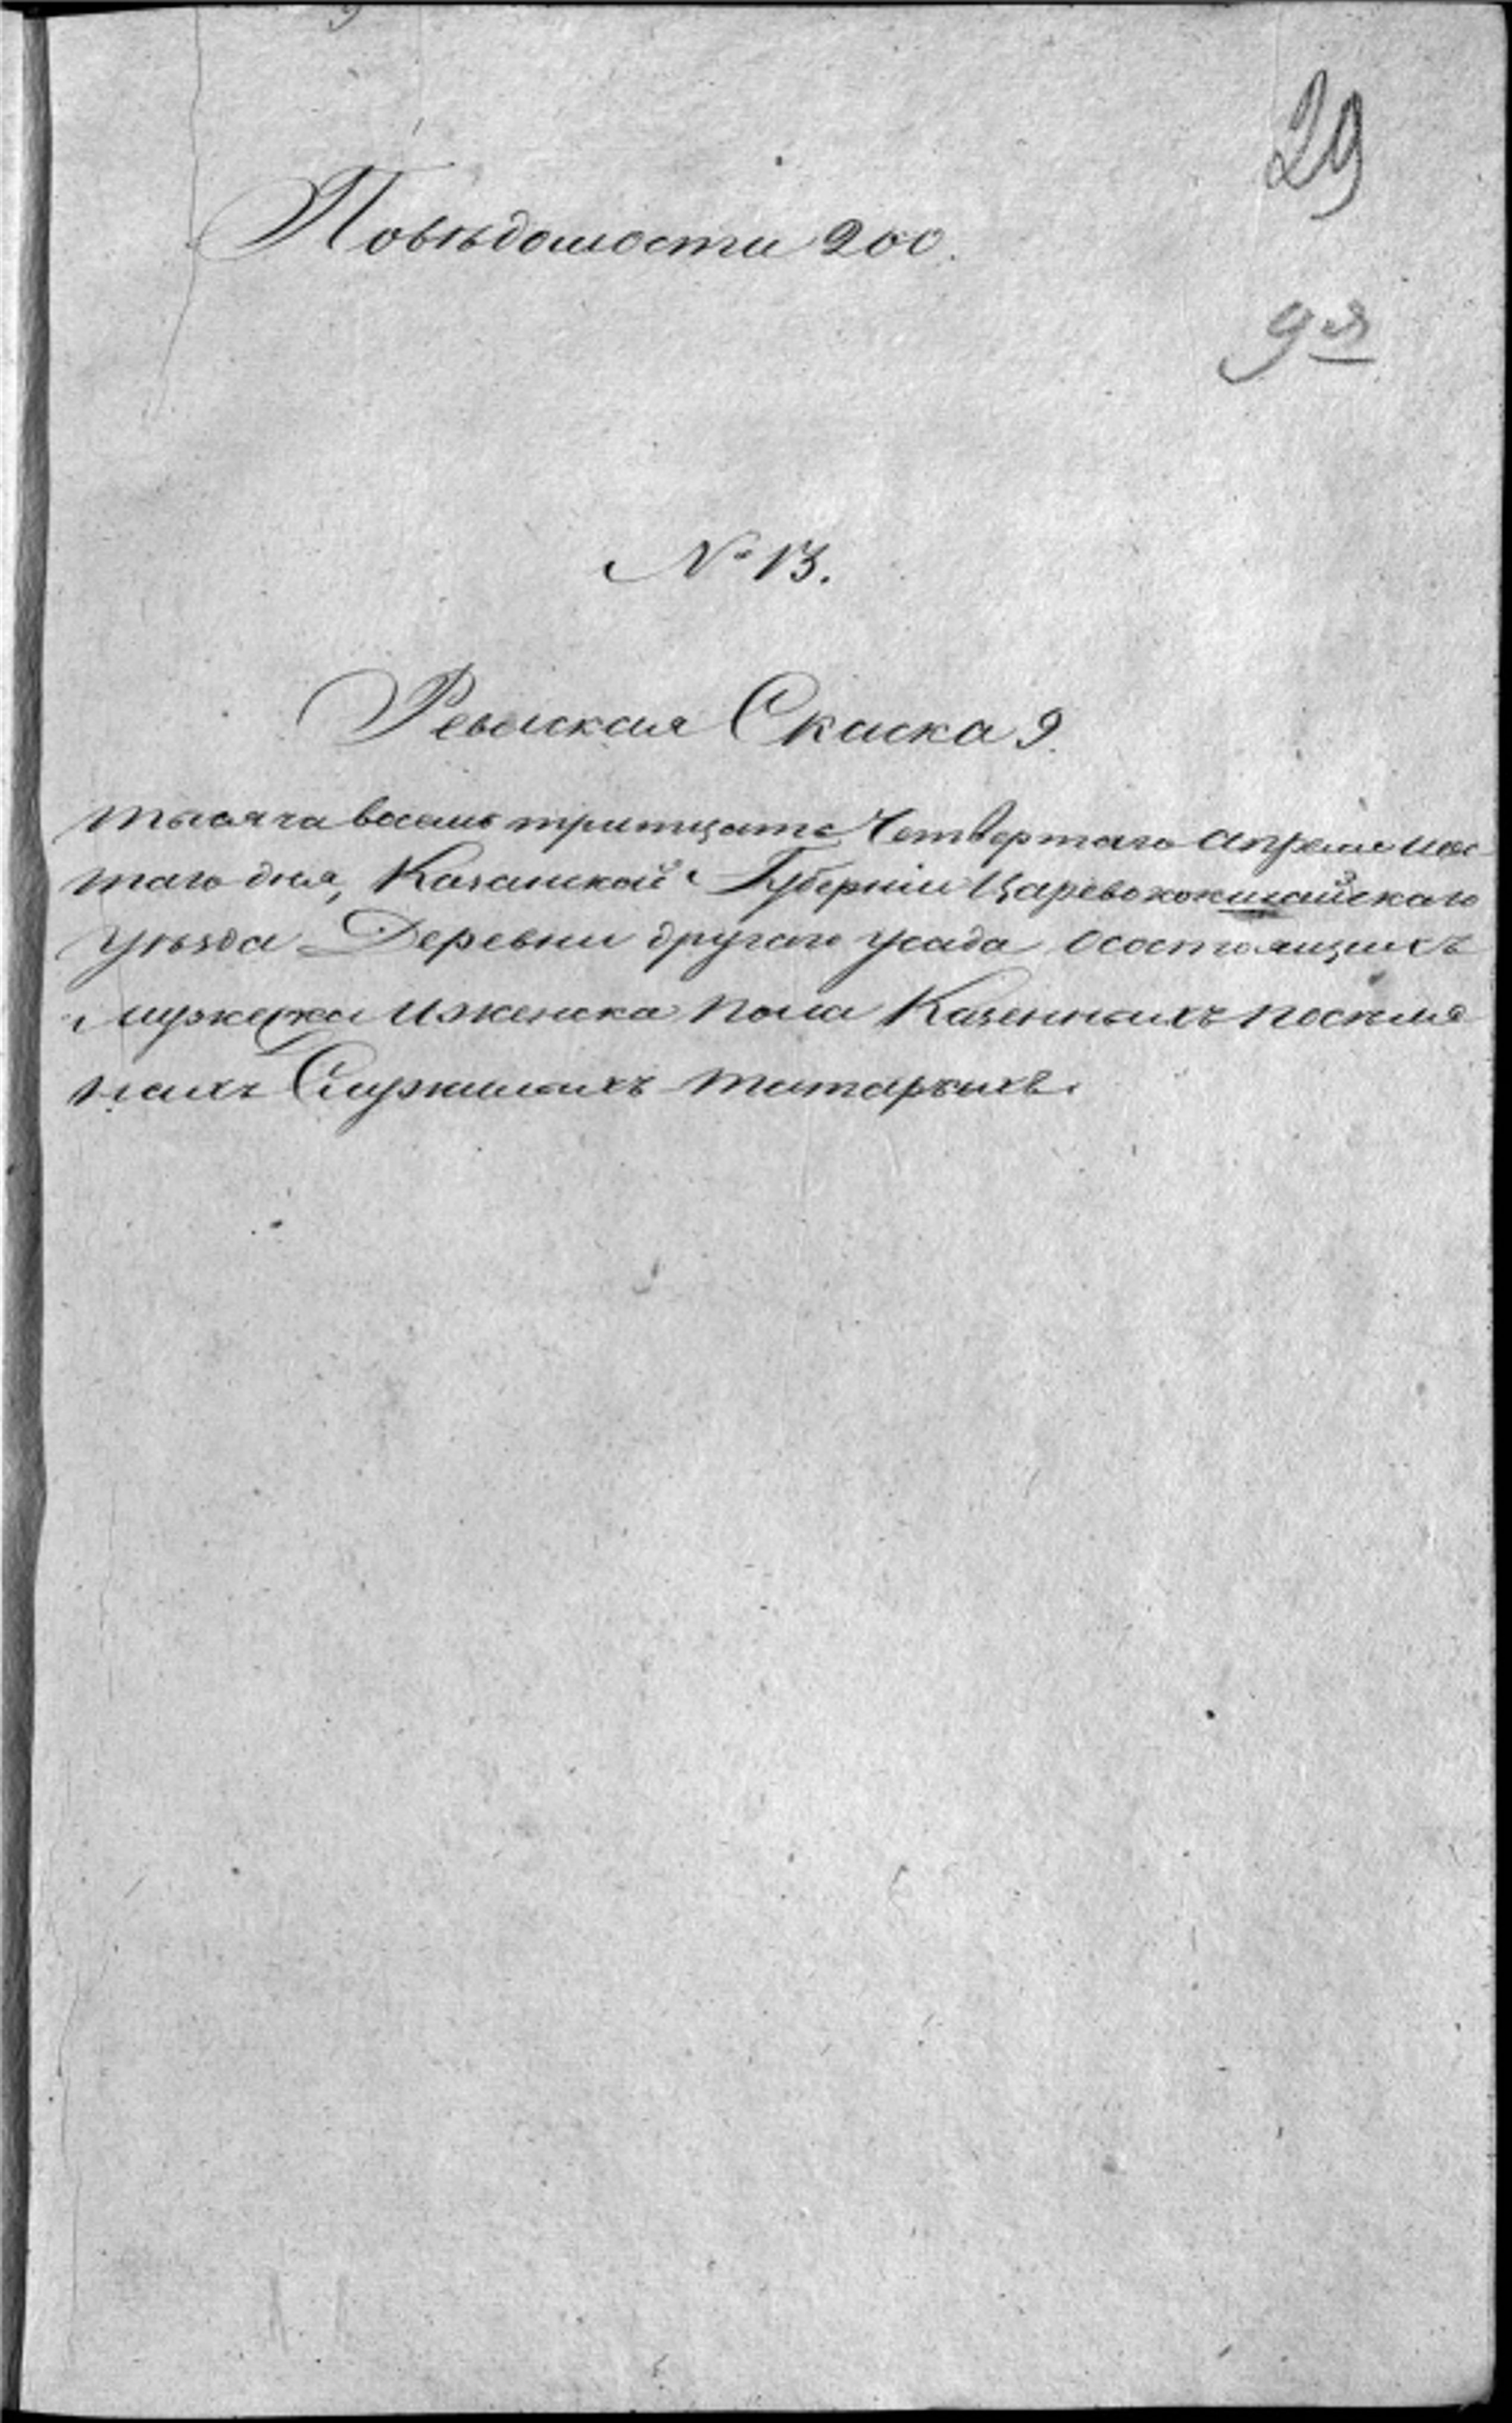 29
Повѣдомости 200.
9я
№ 13.
Ревиская Скаска 9.
тысяча восемь тритцать Четвертаго апреля шес
таго дня, Казанской Губерніи Царевококшайскаго
уѣзда Деревни другаго усада осостоящихъ
мужеска иженска пола Казенныхъ поселя
нахъ Служилыхъ татаръхъ.